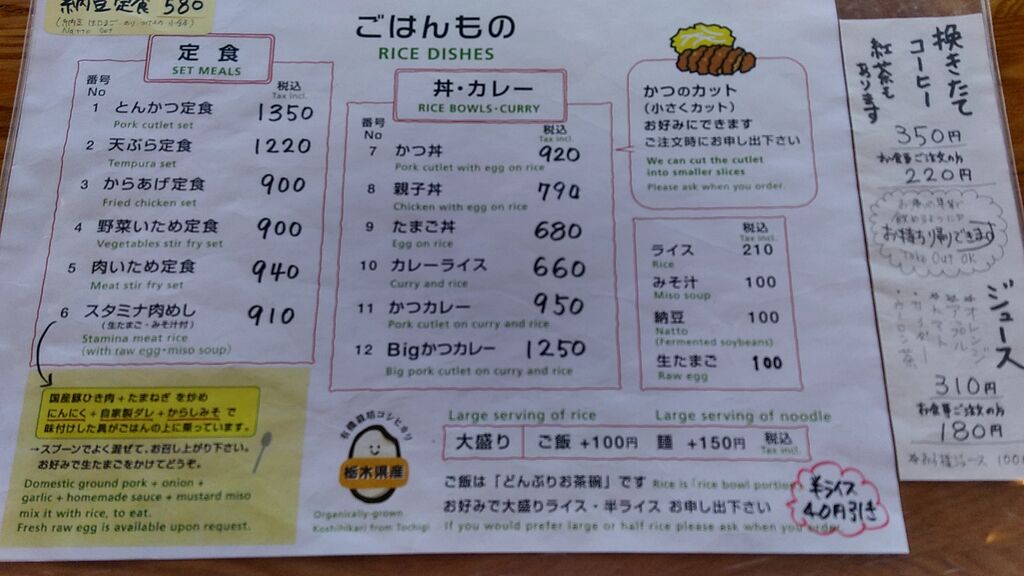 納豆定食 580
Natto Set
ごはんもの
RICE DISHES
定食
SET MEALS
番号
No
税込
Tax incl.
1 とんかつ定食 1350
Pork cutlet set
2 天ぷら定食 1220
Tempura set
3 からあげ定食 900
Fried chicken set
4 野菜いため定食 900
Vegetables stir fry set
5 肉いため定食 940
Meat stir fry set
6 スタミナ肉めし 910
(生たまご・みそ汁付)
Stamina meat rice
(with raw egg・miso soup)
国産豚ひき肉+たまねぎ を炒め
にんにく+自家製ダレ+からしみそ で
味付けした具がごはんの上に乗っています。
→スプーンでよく混ぜて、お召し上がり下さい。
お好みで生たまごをかけてどうぞ。
Domestic ground pork + onion +
garlic + homemade sauce + mustard miso
mix it with rice, to eat.
Fresh raw egg is available upon request.
丼・カレー
RICE BOWLS・CURRY
番号
No
税込
Tax incl.
7 かつ丼 920
Pork cutlet with egg on rice
8 親子丼 790
Chicken with egg on rice
9 たまご丼 680
Egg on rice
10 カレーライス 660
Curry and rice
11 かつカレー 950
Pork cutlet on curry and rice
12 Bigかつカレー 1250
Big pork cutlet on curry and rice
かつのカット
(小さくカット)
お好みにできます
ご注文時にお申し出下さい
We can cut the cutlet
into smaller slices
Please ask when you order.
税込
Tax incl.
ライス 210
Rice
みそ汁 100
Miso soup
納豆 100
Natto
(Fermented soybeans)
生たまご 100
Raw egg
有機栽培コシヒカリ
栃木県産
Organically-grown
Koshihikari from Tochigi
Large serving of rice Large serving of noodle
大盛り ご飯 +100円 麺 +150円 税込
Tax incl.
ご飯は「どんぶりお茶碗」です Rice is「rice bowl portion
お好みで大盛りライス・半ライス お申し出下さい
If you would prefer large or half rice please ask when you order.
半ライス
40円引き
挽きたて
コーヒー
紅茶も
あります
350円
お食事ご注文の方
220円
お車の中で
飲めるように
お持ち帰りできます
Take Out OK
ジュース
・オレンジ
・アップル
・トマト
・サイダー
・ウーロン茶
310円
お食事ご注文の方
180円